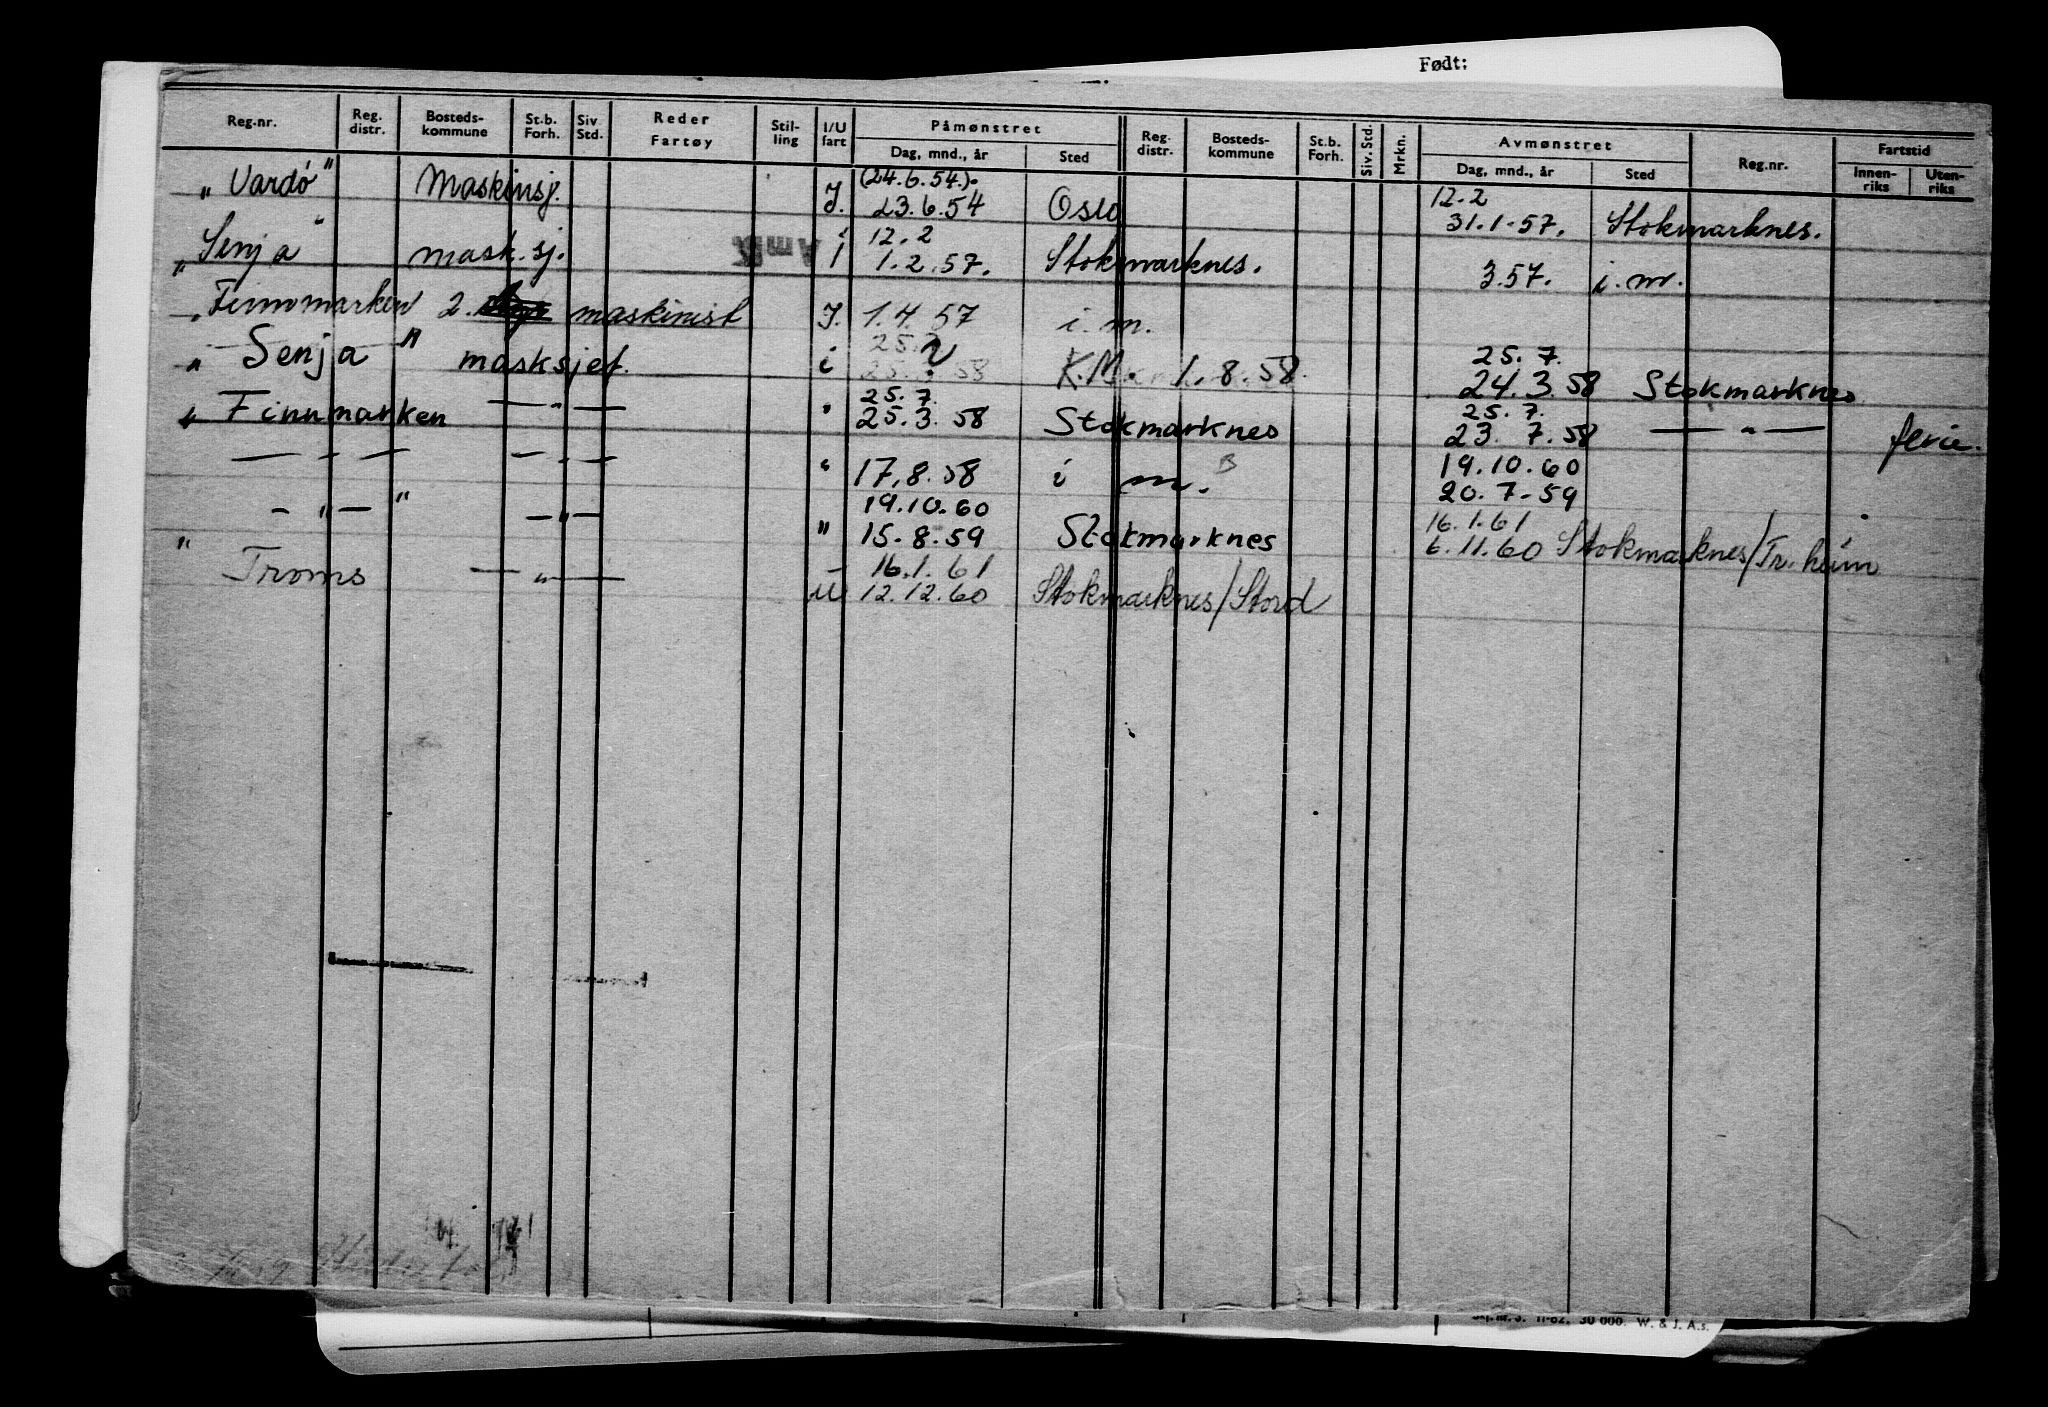 Født:
Reg.nr. Reg. distr. Bosteds-kommune St.b. Forh. Siv Std. Reder Fartøy Stil-ling I/U fart Påmønstret Dag, mnd., år Sted Reg. distr. Bosteds-kommune St.b. Forh. Siv. Std. Mrkn. Avmønstret Dag, mnd., år Sted Reg.nr. Fartstid Innen-riks Uten-riks
(24.6.54). 12.2
"Vardø" Maskinsj. I. 23.6.54 Oslo 31.1.57. Stokmarknes.
12.2
"Senja" mask.sj. i 1.2.57. Stokmarknes. 3.57. i.m.
"Finnmarken 2. maskinist I. 1.4.57 i.m.
25. 25.7.
"Senja" masksjef. i 58 K.M. 1.8.58. 24.3.58 Stokmarknes
25.7. 25.7.
"Finnmarken — " — " 25.3.58 Stokmarknes 23.7.58 — " — ferie.
— " — — " — " 17.8.58 i m. B 19.10.60
19.10.60 20.7-59
— " — " — " — " 15.8.59 Stokmarknes 16.1.61
16.1.61 6.11.60 Stokmarknes/Tr.heim
" Troms — " — u 12.12.60 Stokmarknes/Stord
11-62. 30 000. W. & J. A.s.